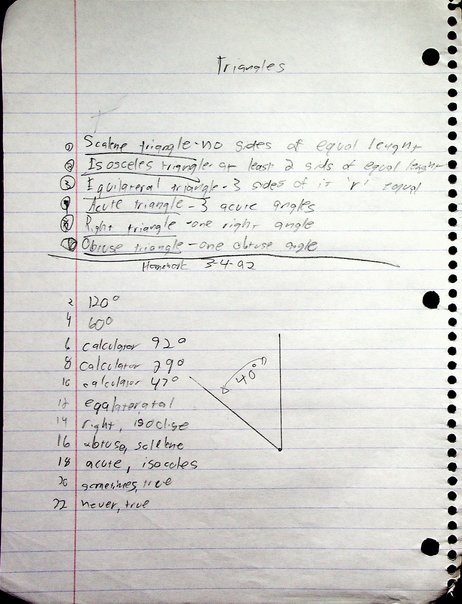 Triangles
① Scalene triangle - no sides of equal lenght
② Isosceles triangle - at least 2 sids of equal lenght
③ Equilateral triangle - 3 sides of it 'r' equal
④ Acute triangle - 3 acute angles
⑤ Right triangle - one right angle
⑥ Obtuse triangle - one obtuse angle
Homework 3-4-92
2 120°
4 60°
6 calculator 92°
8 calculator 29°
10 calculator 47°
12
14 right,
16 obtuse,
18 acute, isoceles
20 sometimes, true
22 never, true
40°